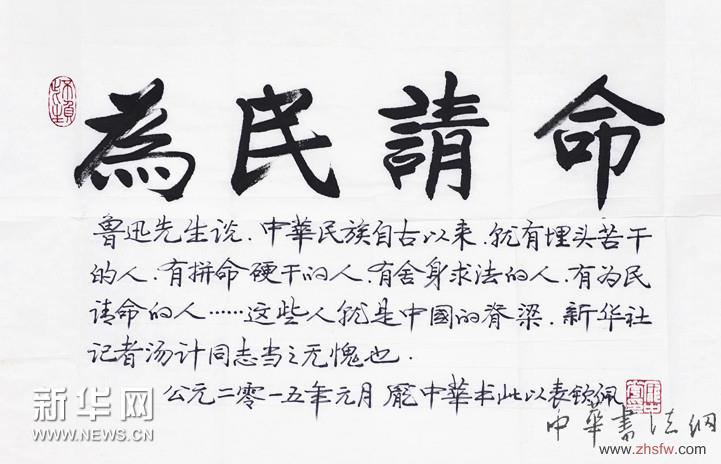 為民請命
鲁迅先生说.中華民族自古以来.就有埋头苦干
的人.有拼命硬干的人.有舍身求法的人.有为民
请命的人……这些人就是中國的脊梁.新华社
记者汤计同志当之无愧也.
公元二零一五年元月 龐中華书此以表钦佩
新华网
WWW.NEWS.CN
中華書法網
www.zhsfw.com